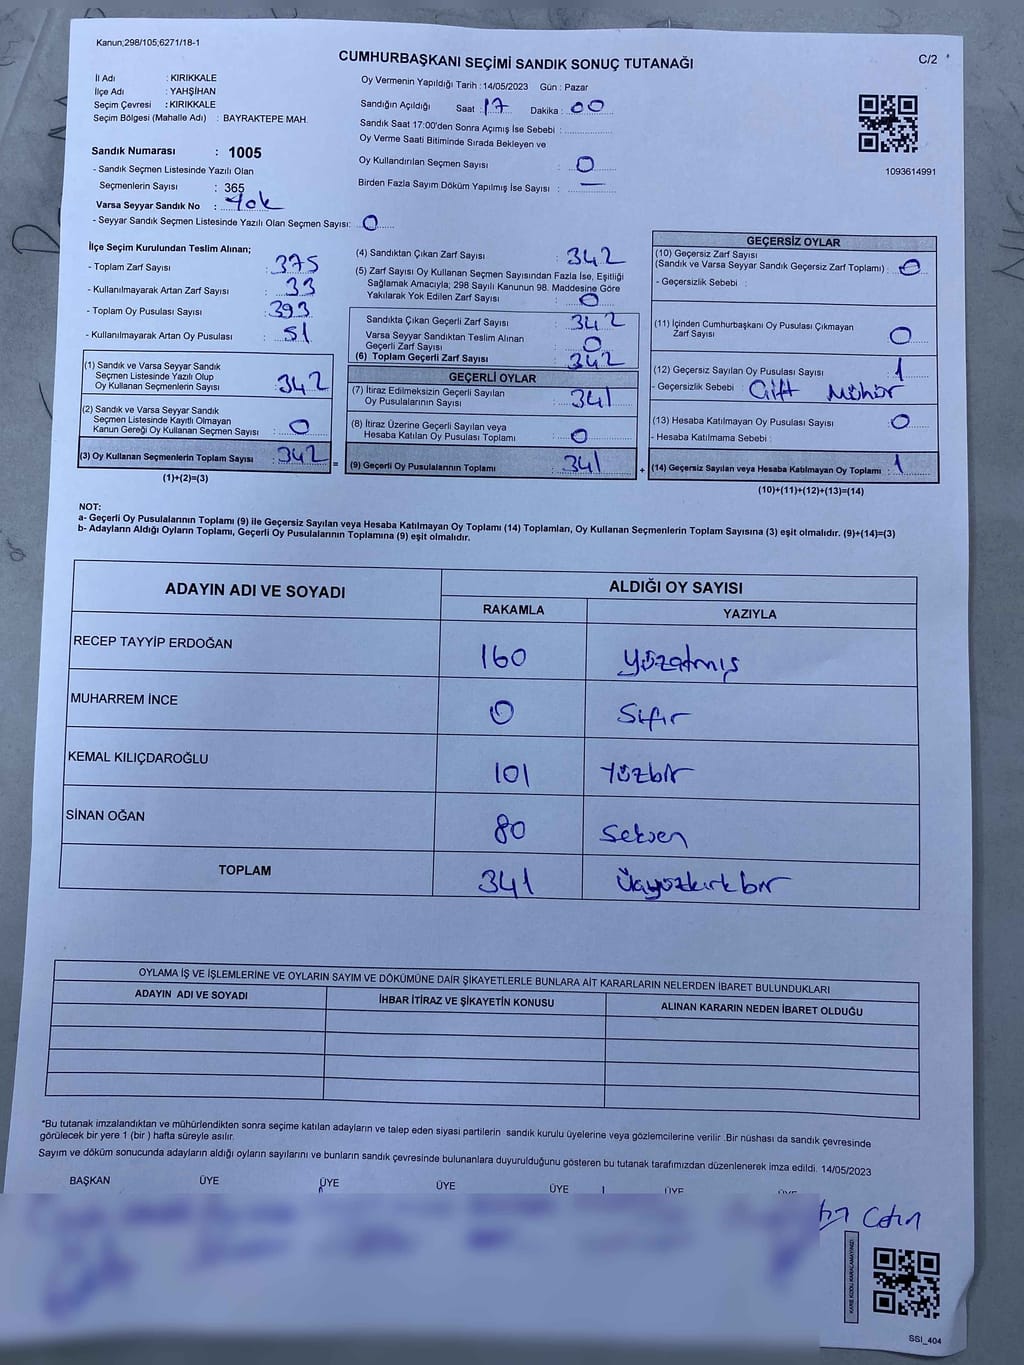 Kanun;298/105;6271/18-1
C/2
CUMHURBAŞKANI SEÇİMİ SANDIK SONUÇ TUTANAĞI
İl Adı : KIRIKKALE
İlçe Adı : YAHŞİHAN
Seçim Çevresi : KIRIKKALE
Seçim Bölgesi (Mahalle Adı) : BAYRAKTEPE MAH.
Oy Vermenin Yapıldığı Tarih : 14/05/2023 Gün : Pazar
Sandığın Açıldığı Saat : 17 Dakika : 00
Sandık Saat 17:00'den Sonra Açımış İse Sebebi :
Oy Verme Saati Bitiminde Sırada Bekleyen ve
Oy Kullandırılan Seçmen Sayısı : 0
Birden Fazla Sayım Döküm Yapılmış İse Sayısı : —
1093614991
Sandık Numarası : 1005
- Sandık Seçmen Listesinde Yazılı Olan
Seçmenlerin Sayısı : 365
Varsa Seyyar Sandık No : Yok
- Seyyar Sandık Seçmen Listesinde Yazılı Olan Seçmen Sayısı: 0
İlçe Seçim Kurulundan Teslim Alınan;
- Toplam Zarf Sayısı : 375
- Kullanılmayarak Artan Zarf Sayısı : 33
- Toplam Oy Pusulası Sayısı : 393
- Kullanılmayarak Artan Oy Pusulası : 51
(1) Sandık ve Varsa Seyyar Sandık
Seçmen Listesinde Yazılı Olup
Oy Kullanan Seçmenlerin Sayısı : 342
(2) Sandık ve Varsa Seyyar Sandık
Seçmen Listesinde Kayıtlı Olmayan
Kanun Gereği Oy Kullanan Seçmen Sayısı : 0
(3) Oy Kullanan Seçmenlerin Toplam Sayısı : 342
(1)+(2)=(3)
=
(4) Sandıktan Çıkan Zarf Sayısı : 342
(5) Zarf Sayısı Oy Kullanan Seçmen Sayısından Fazla İse, Eşitliği
Sağlamak Amacıyla; 298 Sayılı Kanunun 98. Maddesine Göre
Yakılarak Yok Edilen Zarf Sayısı : 0
Sandıkta Çıkan Geçerli Zarf Sayısı : 342
Varsa Seyyar Sandıktan Teslim Alınan
Geçerli Zarf Sayısı : 0
(6) Toplam Geçerli Zarf Sayısı : 342
GEÇERLİ OYLAR
(7) İtiraz Edilmeksizin Geçerli Sayılan
Oy Pusulalarının Sayısı : 341
(8) İtiraz Üzerine Geçerli Sayılan veya
Hesaba Katılan Oy Pusulası Toplamı : 0
(9) Geçerli Oy Pusulalarının Toplamı : 341
+
GEÇERSİZ OYLAR
(10) Geçersiz Zarf Sayısı
(Sandık ve Varsa Seyyar Sandık Geçersiz Zarf Toplamı) : 0
- Geçersizlik Sebebi :
(11) İçinden Cumhurbaşkanı Oy Pusulası Çıkmayan
Zarf Sayısı : 0
(12) Geçersiz Sayılan Oy Pusulası Sayısı : 1
- Geçersizlik Sebebi : Çift Mühür
(13) Hesaba Katılmayan Oy Pusulası Sayısı : 0
- Hesaba Katılmama Sebebi :
(14) Geçersiz Sayılan veya Hesaba Katılmayan Oy Toplamı : 1
(10)+(11)+(12)+(13)=(14)
NOT:
a- Geçerli Oy Pusulalarının Toplamı (9) ile Geçersiz Sayılan veya Hesaba Katılmayan Oy Toplamı (14) Toplamları, Oy Kullanan Seçmenlerin Toplam Sayısına (3) eşit olmalıdır. (9)+(14)=(3)
b- Adayların Aldığı Oyların Toplamı, Geçerli Oy Pusulalarının Toplamına (9) eşit olmalıdır.
ADAYIN ADI VE SOYADI
ALDIĞI OY SAYISI
RAKAMLA YAZIYLA
RECEP TAYYİP ERDOĞAN 160 yüzatmış
MUHARREM İNCE 0 Sıfır
KEMAL KILIÇDAROĞLU 101 Yüzbir
SİNAN OĞAN 80 Seksen
TOPLAM 341 Üçyüzkırkbir
OYLAMA İŞ VE İŞLEMLERİNE VE OYLARIN SAYIM VE DÖKÜMÜNE DAİR ŞİKAYETLERLE BUNLARA AİT KARARLARIN NELERDEN İBARET BULUNDUKLARI
ADAYIN ADI VE SOYADI İHBAR İTİRAZ VE ŞİKAYETİN KONUSU ALINAN KARARIN NEDEN İBARET OLDUĞU
*Bu tutanak imzalandıktan ve mühürlendikten sonra seçime katılan adayların ve talep eden siyasi partilerin sandık kurulu üyelerine veya gözlemcilerine verilir .Bir nüshası da sandık çevresinde
görülecek bir yere 1 (bir ) hafta süreyle asılır.
Sayım ve döküm sonucunda adayların aldığı oyların sayılarını ve bunların sandık çevresinde bulunanlara duyurulduğunu gösteren bu tutanak tarafımızdan düzenlenerek imza edildi. 14/05/2023
BAŞKAN ÜYE ÜYE ÜYE ÜYE ÜYE ÜYE
SSI_404